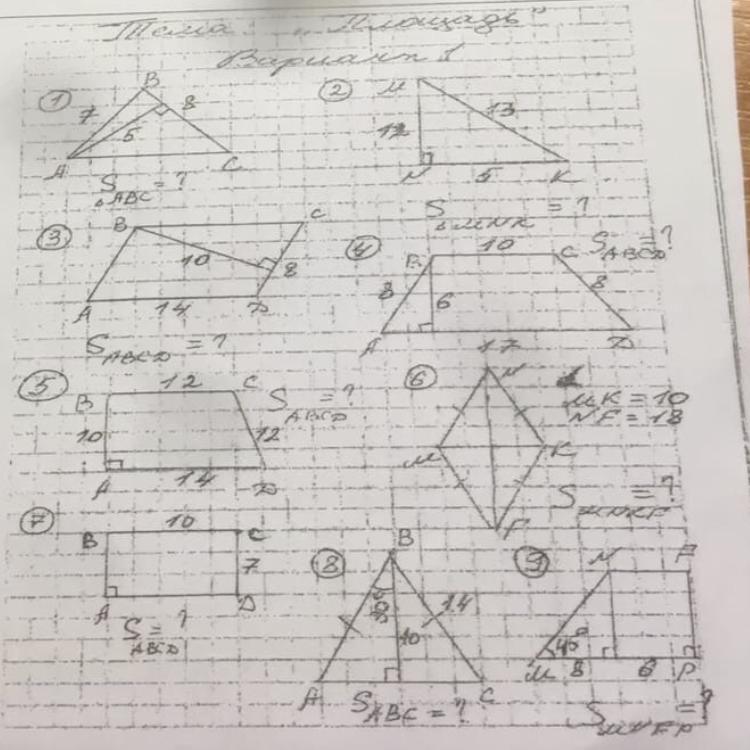 Тема "Площадь"
Вариант 1
① B 7 8 5 A C
S ΔABC = ?
② M 13 12 N 5 K
S ΔMNK = ?
③ B C 10 8 A 14 D
S ABCD = ?
④ B 10 C S ABCD = ?
8 6 8
A 17 D
⑤ B 12 C S ABCD = ?
10 12
A 14 D
⑥ N
MK = 10
NF = 18
M K
F
S MNKF = ?
⑦ 10
B C
7
A D
S ABCD = ?
⑧ B
30° 14
10
A C
S ABC = ?
⑨ N F
45°
M 8 6 P
S MNFP = ?